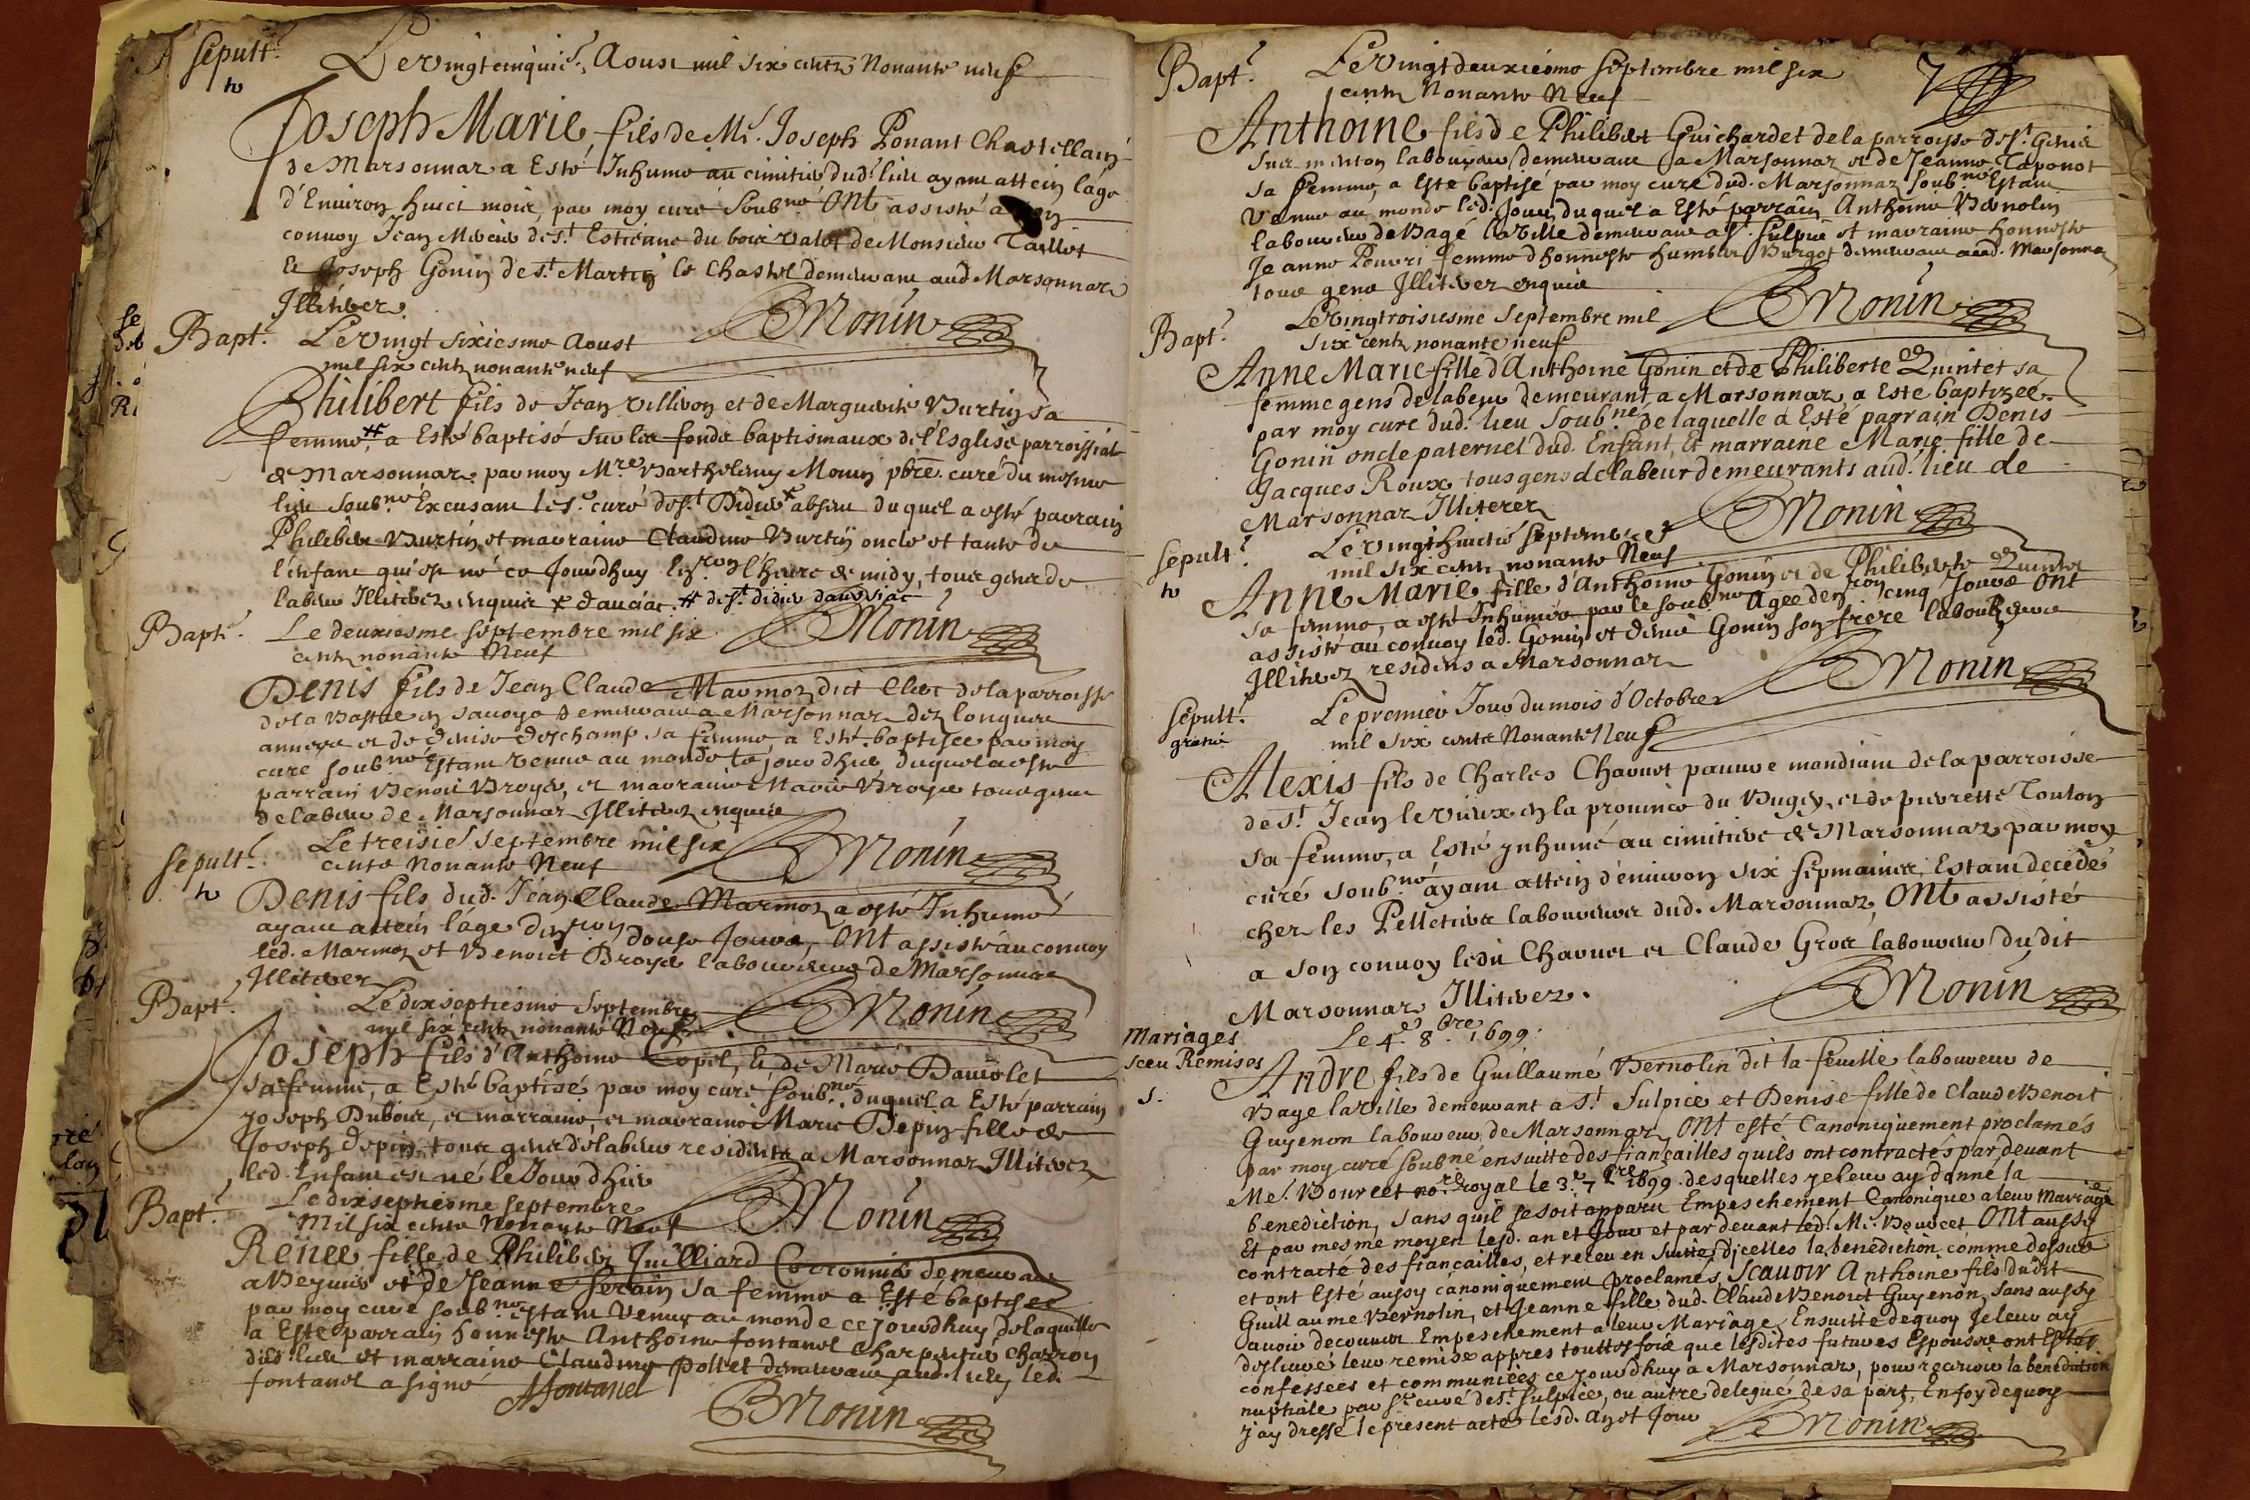 Sepult.e
Le vingtcinquie.e Aoust mil six cents Nonante neuf
Joseph Marie, fils de Mr. Joseph Ponant Chastellain
de Marsonnar a Esté Inhumé au cimitiere dud. lieu ayant attein láge
d'Environ huict mois, par moy curé Soub.né ONt assisté a son
convoy Jean Mercier de St. Estienne du bois valet de Monsieur Taillet
& Joseph Gonin de St. Martin le Chastel demeurant aud. Marsonnar
Illiterez.
BMonin
Bapt.e
Le vingt sixiesme Aoust
mil six cents nonante neuf
Philibert fils de Jean Villion et de Marguerite Burtin sa
femme # a Esté baptisé sur les fonds baptismaux de l'Esglise parroissiale
de Marsonnar par moy Mre. Bartholemy Monin pbre. curé du mesme
lieu soub.né Excusant le Sr. curé de St. Didier x absent duquel a esté parrain
Philibert Burtin et marraine Claudine Burtin oncle et tante de
l'enfant qui est né ce Jourdhuy Environ l'heure de midy, tous gens de
labeur Illiterez enquis x d'auciac. # de St. didier d'aussiac
BMonin
Bapt.e
Le deuxiesme Septembre mil six
cents nonante Neuf
Denis fils de Jean Claude Marmoz dict Clerc de la parroisse
de la Bastie en Savoye demeurant a Marsonnar dez longues
années et de denise deschamp sa femme, a Esté baptisée par moy
curé soub.né Estant venue au monde le jourdhuy duquel a esté
parrain Benoit Broyer, et marraine Marie Broyer tous gens
de labeur de Marsonnar Illiterez enquis
BMonin
Sepult.e
Le treisie.e Septembre mil six
cents Nonante Neuf
Denis fils dud. Jean Claude Marmoz a esté Inhumé
ayant attein láge denviron douse Jours, ONt assisté au convoy
led. Marmoz et Benoict Broyer laboureurs de Marsonnar
Illiterez
BMonin
Bapt.e
Le dixseptiesme Septembre
mil six cents nonante Neuf
Joseph fils d'Anthoine Copel, & de Marie Daniolet
sa femme, a Esté baptisé par moy curé soub.né duquel a Esté parrain
Joseph Dubois, et marraine, et marraine Marie Depin fille de
Joseph depin, tous gens de labeur residents a Marsonnar Illiterez
led. Enfant est né le Jourdhuy
BMonin
Bapt.e
Le dixseptiesme Septembre
Mil six cents Nonante Neuf
Renee fille de Philibert Juilliard Cordonnier demeurant
a Beynier et de Jeanne Serain sa femme a Esté baptisée
par moy curé soub.né Estant Venue au monde ce jourdhuy de laquelle
a Esté parrain honneste Anthoine fontanel Charpentier Charron
dud. lieu et marraine Claudine Pollet demeurant aud. lieu, led.
fontanel a signé AFontanel
BMonin
Bapt.e
Le Vingtdeuxiesme Septembre mil six
cents Nonante Neuf
7
Anthoine fils de Philibert Guichardet de la parroisse de St. Genis
sur menton laboureur demeurant a Marsonnar et de Jeanne Taponot
sa femme, a Esté baptisé par moy curé dud. Marsonnar soub.né Estant
Venue au monde led. Jour, duquel a Esté parrain Anthoine Bernolin
laboureur de Bagé la Ville demeurant a St. Sulpice et marraine honneste
Jeanne Peuvri femme d'honneste humbler Burgot demeurant aud. Marsonnar
tous gens Illiterez enquis
BMonin
Bapt.e
Le vingtroisiesme Septembre mil
six cents nonante neuf
Anne Marie fille d'Anthoine Gonin et de Philiberte Quintet sa
femme gens de labeur demeurant a Marsonnar, a Esté baptizée
par moy curé dud. lieu soub.né de laquelle a Esté parrain Denis
Gonin oncle paternel dud. Enfant, & marraine Marie fille de
Jacques Roux tous gens de labeur demeurants aud. lieu de
Marsonnar Illiterez
BMonin
Sepult.e
Le vingthuictie Septembre
mil six cents nonante Neuf
Anne Marie fille d'Anthoine Gonin et de Philiberte Quintet
sa femme, a esté Inhumée par le soub.né Agée denviron cinq Jours ONt
assisté au convoy led. Gonin et denis Gonin son frere laboureurs
Illiterez residens a Marsonnar
BMonin
Sepult.e
gratis
Le premier Jour du mois d'Octobre
mil six cents Nonante Neuf
Alexis fils de Charles Chavnet pauvre mandiant de la parroisse
de St. Jean le Vieux en la province du Bugey, et de pierrette Touton
sa femme, a Esté ynhumé au cimitiere de Marsonnar par moy
curé soub.né ayant attein d'environ six sepmaines, Estant decedé
cher les Pelletiers laboureurs dud. Marsonnar, ONt assisté
a son convoy ledit Chavnet et Claude Gros laboureur dudit
Marsonnar Illiterez.
BMonin
Mariages
sceu Remises
s.
Le 4.e 8.bre 1699.
André fils de Guillaume Bernolin dit la feuille laboureur de
Bagé la Ville demeurant a St. Sulpice et Denise fille de Claude Benoit
Guyenon laboureur de Marsonnar, ONt esté Canoniquement proclamés
par moy curé soub.né ensuitte des fiançailles quils ont contractés par devant
Me. Bourcet no.re royal le 3.e 7.bre 1699. desquelles je leur ay donné la
benediction, sans quil se soit apparu Empeschement Canonique a leur Mariage
Et par mesme moyen lesd. an et Jour et par devant led. Me. Bourcet ONt aussy
contracté des fiançailles, et receu en suitte dicelles la benediction comme dessus
et ont Esté aussy canoniquement proclamés, Scavoir Anthoine fils dudit
Guillaume Bernolin, et Jeanne fille dud. Claude Benoict Guyenon, sans aussy
avoir decouvert Empeschement a leur Mariage, Ensuitte dequoy Je leur ay
deslivré leur remise appres touttes fois que lesdites futures Espouses ont Estés
confessées et communiées ce jourdhuy a Marsonnar, pour recevoir la benediction
nuptiale par Sr. curé de St. Sulpice, ou autre delegué de sa part, En foy dequoy
j'ay dressé le present acte lesd. An et Jour
BMonin